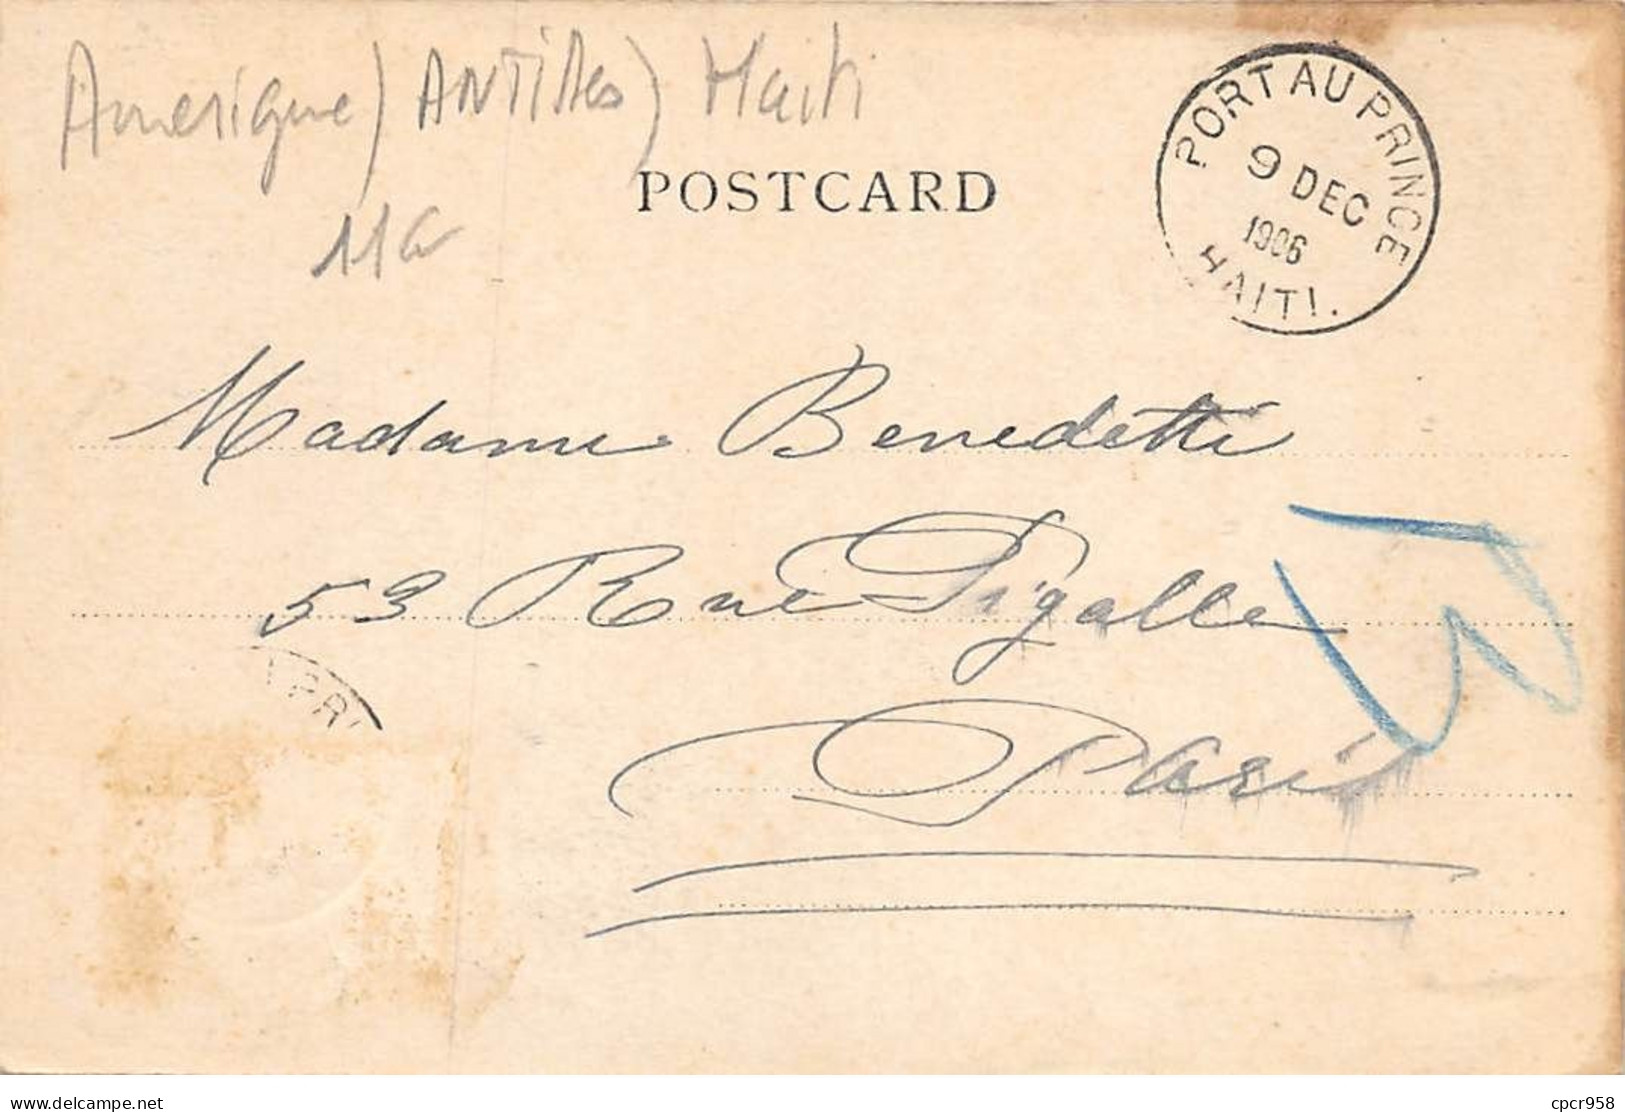 Amerique) ANTilles) Haiti
POSTCARD
PORT AU PRINCE
9 DEC
1906
HAITI.
Madame Benedetti
53 Rue Pigalle
Paris
PRI
delcampe.net
cpcr958